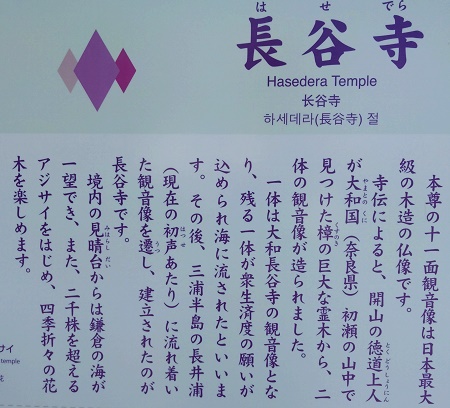 はせでら
長谷寺
Hasedera Temple
长谷寺
하세데라(長谷寺) 절
本尊の十一面観音像は日本最大
級の木造の仏像です。
寺伝によると、開山の徳道上人
とくどうしょうにん
が大和国(奈良県)初瀬の山中で
やまとのくに
見つけた樟の巨大な霊木から、二
くすのき
体の観音像が造られました。
一体は大和長谷寺の観音像とな
り、残る一体が衆生済度の願いが
込められ海に流されたといいま
す。その後、三浦半島の長井浦
(現在の初声あたり)に流れ着い
はつせ
た観音像を遷し、建立されたのが
うつ
長谷寺です。
境内の見晴台からは鎌倉の海が
みはらしだい
一望でき、また、二千株を超える
アジサイをはじめ、四季折々の花
木を楽しめます。
サイ
temple
花